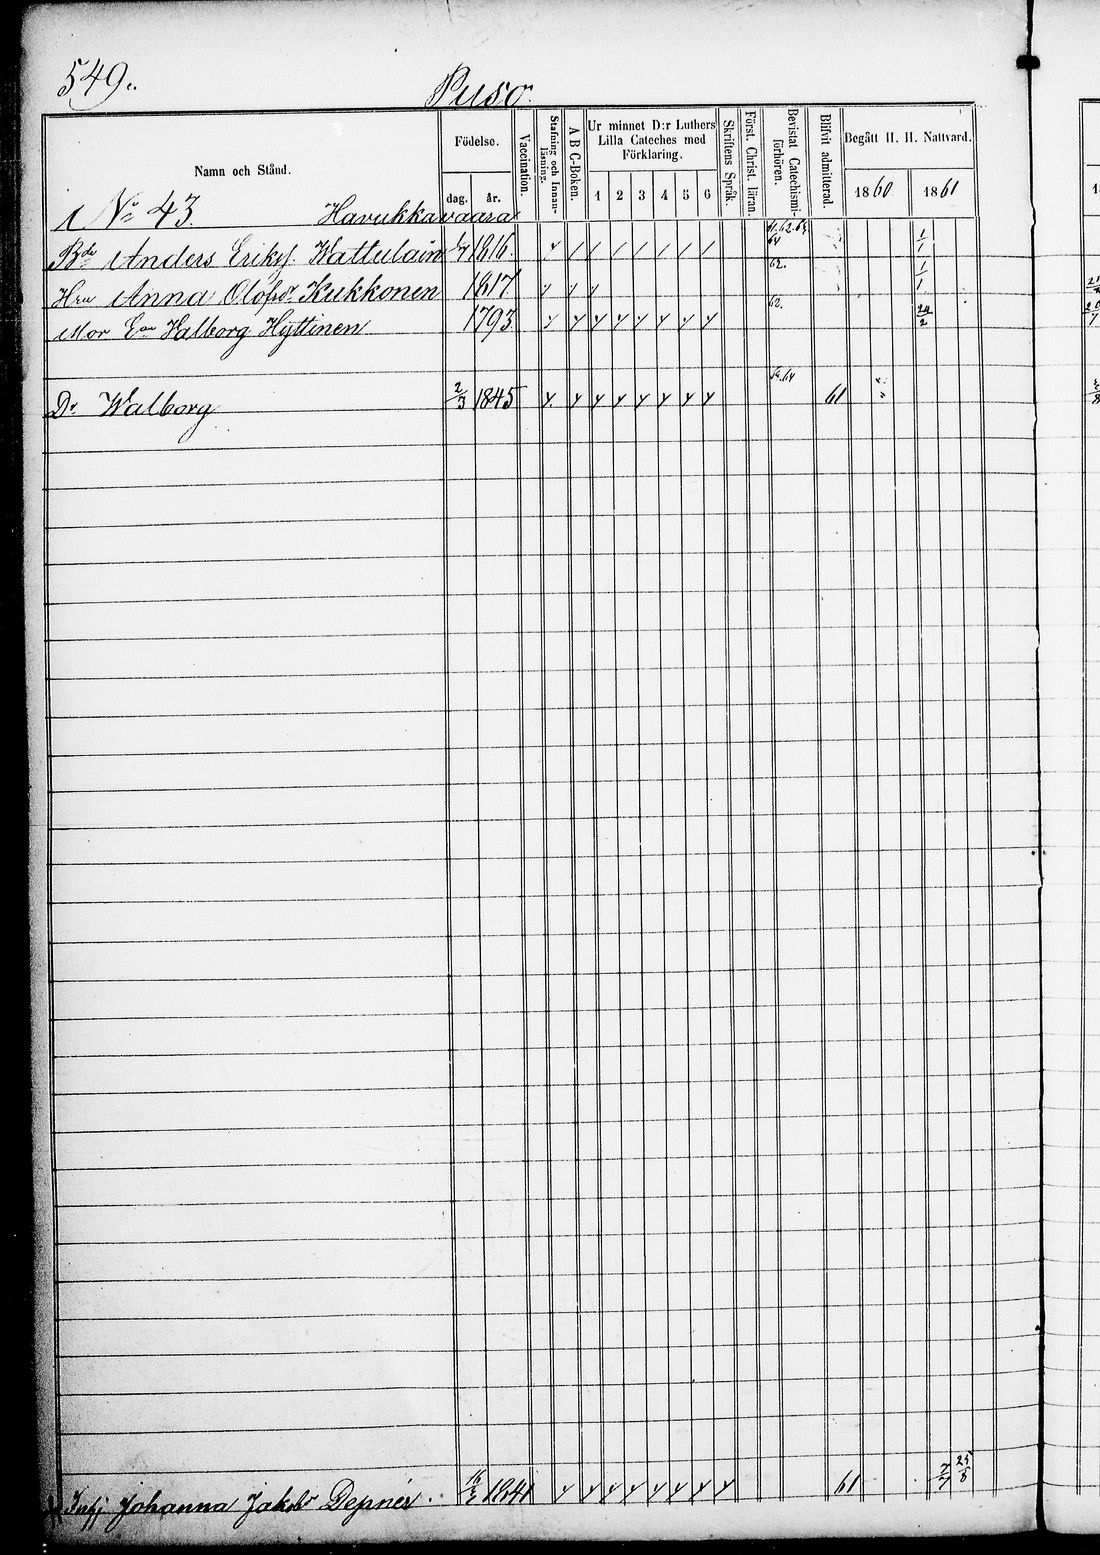 549.
Puso.
Namn och Stånd.
Födelse.
dag. år.
Vaccination.
Stafning och Innan-läsning.
A B C-Boken.
Ur minnet D:r Luthers Lilla Cateches med Förklaring.
1 2 3 4 5 6
Skriftens Språk.
Först. Christ. läran.
Bevistat Catechismi-förhören.
Blifvit admitterad.
Begått H. H. Nattvard.
1860 1861
1 No 43. Havukkavaara
Bde Anders Eriks. Wattulain 1/7 1816. 61.62.63 64 1/1
Hru Anna Olofsdr Kukkonen 1817 62. 1/1
Mor Eva Valborg Hyttinen 1793 62. 24/2
Dr Walborg 2/3 1845 61
Inhj Johanna Jakobsdr Depnér 1841 61 7/7 25/8